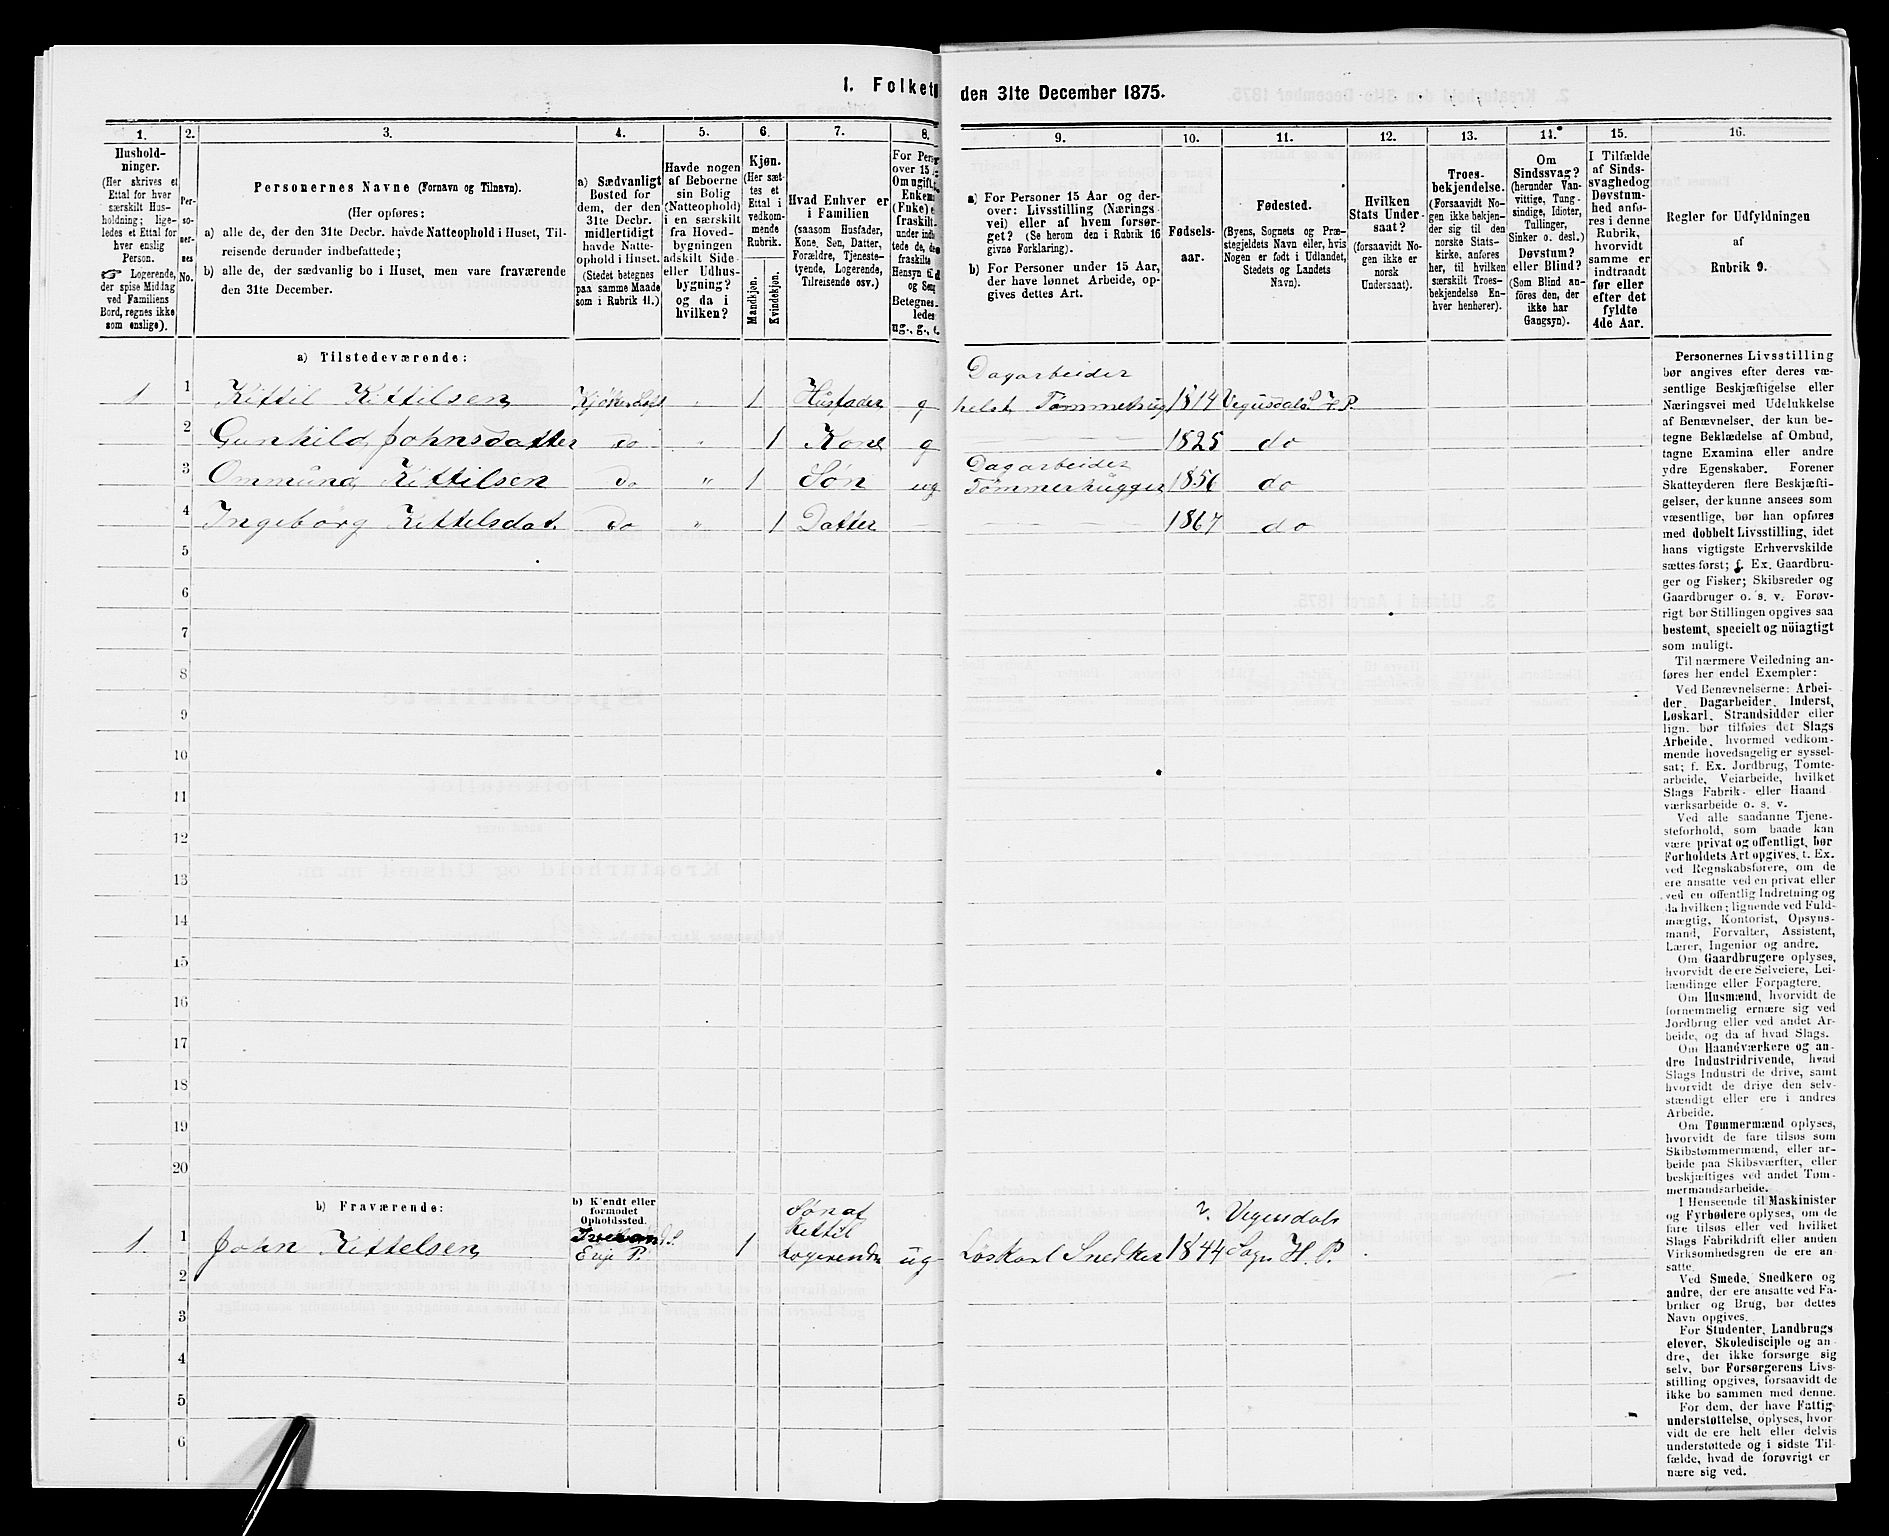 1. Folket
den 31te December 1875.
1. 2. 3. 4. 5. 6. 7. 8. 9. 10. 11. 12. 13. 14. 15. 16.
Hushold-
ninger.
(Her skrives et
Ettal for hver
særskilt Hus-
holdning; lige-
ledes et Ettal for
hver enslig
Person.
☞ Logerende,
der spise Middag
ved Familiens
Bord, regnes ikke
som enslige).
Per-
so-
ner-
nes
No.
Personernes Navne (Fornavn og Tilnavn).
(Her opføres:
a) alle de, der den 31te Decbr. havde Natteophold i Huset, Til-
reisende derunder indbefattede;
b) alle de, der sædvanlig bo i Huset, men vare fraværende
den 31te December.
a) Sædvanligt
Bosted for
dem, der den
31te Decbr.
midlertidigt
havde Natte-
ophold i Huset.
(Stedet betegnes
paa samme Maade
som i Rubrik 11.)
Havde nogen
af Beboerne
sin Bolig
(Natteophold)
i en særskilt
fra Hoved-
bygningen
adskilt Side-
eller Udhus-
bygning?
og da i
hvilken?
Kjøn.
(Her sæt-
tes et
Ettal i
vedkom-
mende
Rubrik.
Mandkjøn.
Kvindekjøn.
Hvad Enhver er
i Familien
(saasom Husfader,
Kone, Søn, Datter,
Forældre, Tjeneste-
tyende, Logerende,
Tilreisende osv.)
For Person
over 15
Om ugift,
Enkem
(Fuke)
fraskilt
Betegnes
ledes
ug., g.,
a) For Personer 15 Aar og der-
over: Livsstilling (Nærings-
vei) eller af hvem forsør-
get? (Se herom den i Rubrik 16
givne Forklaring).
b) For Personer under 15 Aar,
der have lønnet Arbeide, op-
gives dettes Art.
Fødsels-
aar.
Fødested.
(Byens, Sognets og Præ-
stegjeldets Navn eller, hvis
Nogen er født i Udlandet,
Stedets og Landets
Navn).
Hvilken
Stats Under-
saat?
(forsaavidt No-
gen ikke er
norsk
Undersaat).
Troes-
bekjendelse.
(Forsaavidt No-
gen ikke bekjen-
der sig til den
norske Stats-
kirke, anføres
her, til hvilken
særskilt Troes-
bekjendelse En-
hver henhører).
Om
Sindssvag?
(herunder Van-
vittige, Tung-
sindige, Idioter,
Sinker o. desl.)
Døvstum?
eller Blind?
(Som Blind an-
føres den, der
ikke har
Gangsyn).
I Tilfælde
af Sinds-
svaghed og
Døvstum-
hed anfø-
res i denne
Rubrik,
hvorvidt
samme er
indtraadt
før eller
efter det
fyldte
4de Aar.
Regler for Udfyldningen
af
Rubrik 9.
a) Tilstedeværende:
Dagarbeider
1 1 Kittil Kittilsen " 1 Husfader g helst Tømmerhug 1814 Vegusdals H. P.
2 Gunhild Johnsdatter do " 1 Kone g 1825 do
Dagarbeider
3 Ommund Kittilsen do " 1 Søn ug Tømmerhugger 1856 do
4 Ingeborg Kittelsdat. do " 1 Datter 1867 do
5
6
7
8
9
10
11
12
13
14
15
16
17
18
19
20
b) Fraværende:
b) Kjendt eller
formodet
Opholdssted.
Søn af
Kittil
Vegusdals
1. 1 John Kittelsen Evje P. 1 logerende ug Løskarl Snedker 1844 Sogn H. P.
2
3
4
5
6
Personernes Livsstilling
bør angives efter deres væ-
sentlige Beskjæftigelse eller
Næringsvei med Udelukkelse
af Benævnelser, der kun be-
tegne Beklædelse af Ombud,
tagne Examina eller andre
ydre Egenskaber. Forener
Skatteyderen flere Beskjæfti-
gelser, der kunne ansees som
væsentlige, bør han opføres
med dobbelt Livsstilling, idet
hans vigtigste Erhvervskilde
sættes først; f. Ex. Gaardbru-
ger og Fisker; Skibsreder og
Gaardbruger o. s. v. Forøv-
rigt bør Stillingen opgives saa
bestemt, specielt og nöiagtigt
som muligt.
Til nærmere Veiledning an-
føres her endel Exempler:
Ved Benævnelserne: Arbei-
der, Dagarbeider, Inderst,
Løskarl, Strandsidder eller
lign. bør tilføies det Slags
Arbeide, hvormed vedkom-
mende hovedsagelig er syssel-
sat; f. Ex. Jordbrug, Tomte-
arbeide, Veiarbeide, hvilket
Slags Fabrik- eller Haand
værksarbeide o. s. v.
Ved alle saadanne Tjene-
steforhold, som baade kan
være privat og offentligt, bør
Forholdets Art opgives, t. Ex.
ved Regnskabsførere, om de
ere ansatte ved en privat eller
ved en offentlig Indretning og
da hvilken; lignende ved Fuld-
mægtig, Kontorist, Opsyns-
mand, Forvalter, Assistent,
Lærer, Ingeniør og andre.
Om Gaardbrugere oplyses,
hvorvidt de ere Selveiere, Lei-
lændinge eller Forpagtere.
Om Husmænd, hvorvidt de
fornemmelig ernære sig ved
Jordbrug eller ved andet Ar-
beide, og da af hvad Slags.
Om Haandværkere og an-
dre Industridrivende, hvad
Slags Industri de drive, samt
hvorvidt de drive den selv-
stændigt eller ere i andres
Arbeide.
Om Tømmermænd oplyses,
hvorvidt de fare tilsøs som
Skibstømmermænd, eller ar-
beide paa Skibsværfter, eller
beskjæftiges ved andet Tøm-
mermandsarbeide.
I Henseende til Maskinister
og Fyrbødere oplyses, om de
fare tilsøs eller ved hvilket
Slags Fabrikdrift eller anden
Virksomhedsgren de ere an-
satte.
Ved Smede, Snedkere og
andre, der ere ansatte ved Fa-
briker og Brug, bør dettes
Navn opgives.
For Studenter, Landbrugs
elever, Skoledisciple og an-
dre, der ikke forsørge sig
selv, bør Forsørgerens Livs-
stilling opgives, forsaavidt de
ikke bo sammen med denne.
For dem, der have Fattig
understøttelse, oplyses, hvor-
vidt de ere helt eller delvis
understøttede og i sidste Til-
fælde, hvad de forøvrigt er
nære sig ved.